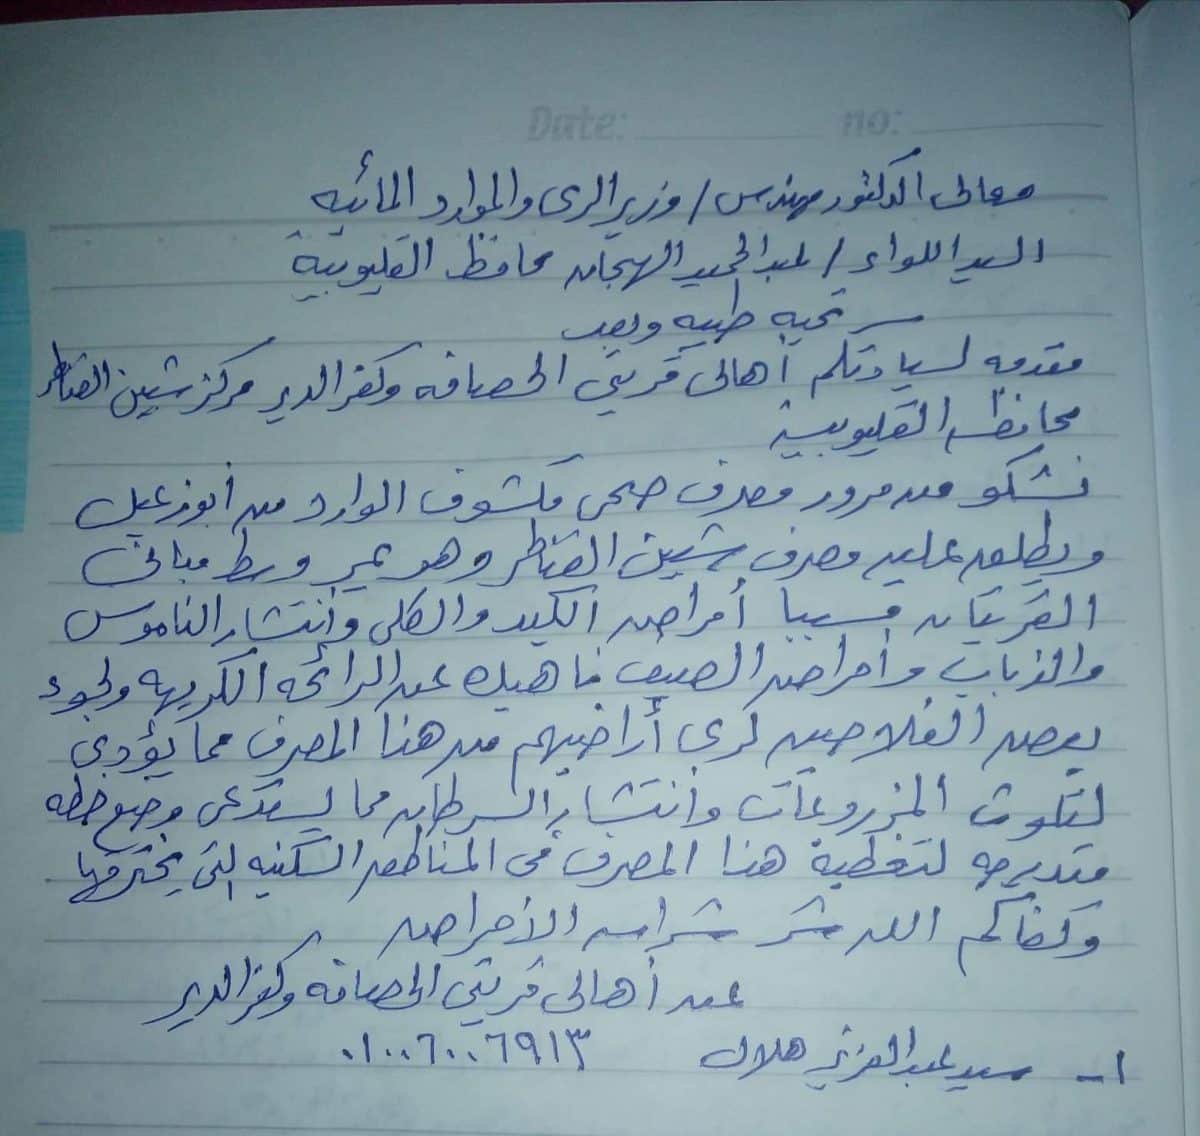 Date: no:
معالى الدكتور مهندس / وزير الرى والموارد المائيه
السيد اللواء / عبد الحميد الهجان محافظ القليوبية
تحيه طيبه وبعد
مقدمه لسيادتكم أهالى قريتي الحصافه وكفر الدير مركز شبين القناطر
محافظه القليوبية
نشكو من مرور مصرف صحى مكشوف الوارد من أبوزعبل
ويطلق عليه مصرف شبين القناطر وهو يمر وسط مبانى
القريتان مسببا أمراض الكبد والكلى وأنتشار الناموس
والذباب وأمراض الصيف ناهيك عن الرائحه الكريهه ولجوء
بعض الفلاحين لرى أراضيهم من هذا المصرف مما يؤدى
لتلوث المزروعات وأنتشار السرطان مما يستدعى وضع خطه
متدرجه لتغطية هذا المصرف فى المناطق السكنيه التى يخترقها
وكفاكم الله شر شراسه الأمراض
عن أهالى قريتي الحصافه وكفر الدير
١- سيد عبد العزيز هلال ٠١٠٠٦٠٠٦٩١٣